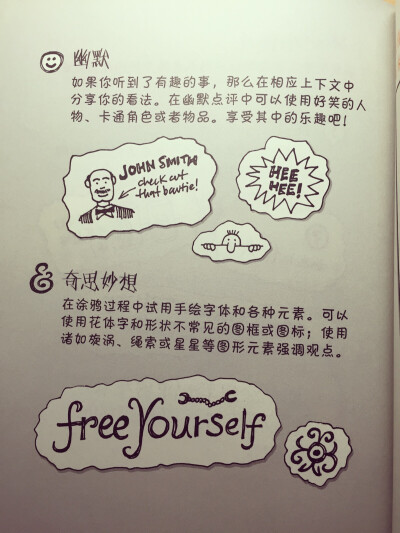 幽默
如果你听到了有趣的事，那么在相应上下文中
分享你的看法。在幽默点评中可以使用好笑的人
物、卡通角色或者物品。享受其中的乐趣吧！
JOHN SMITH
check out
that bowtie!
HEE
HEE!
& 奇思妙想
在涂鸦过程中试用手绘字体和各种元素。可以
使用花体字和形状不常见的图框或图标；使用
诸如旋涡、绳索或星星等图形元素强调观点。
free Yourself